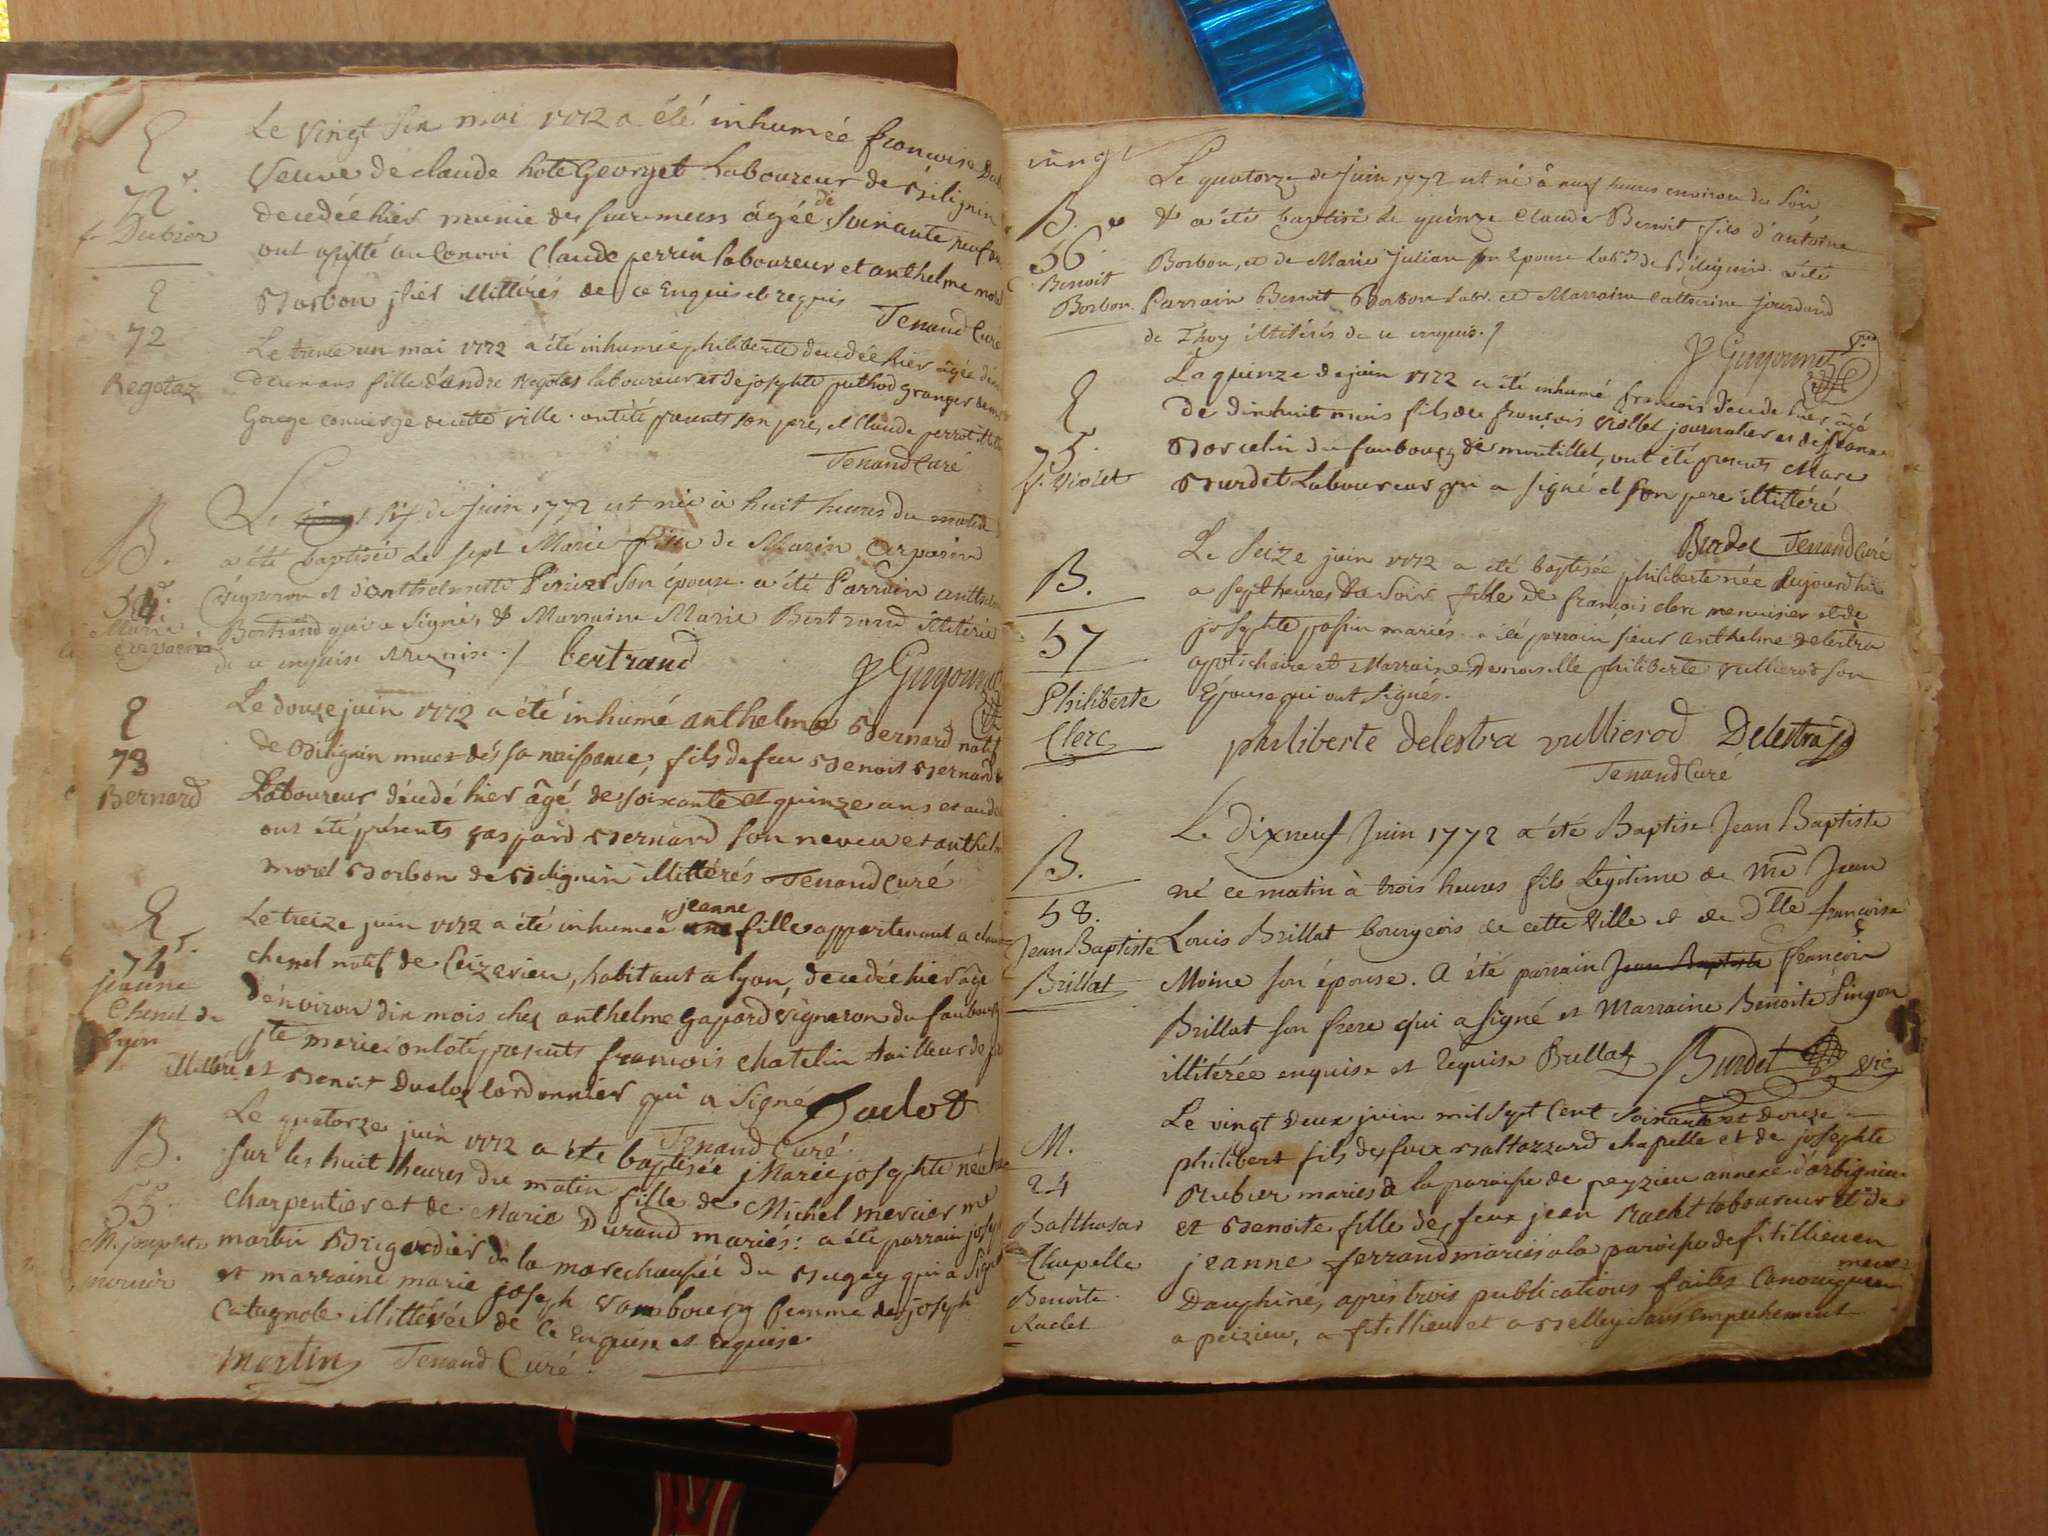 Le vingt six mai 1772 a été inhumée francoise
72e.
f. Dubier
veuve de claude hote Georget Laboureur de Bilignin
decedée hier munie des sacremens âgée de soixante neuf
ont assisté au Convoi Claude perrin laboureur et anthelme
Borbon hier illittérés de ce Enquis et requis
Tenand Curé
72
Regotaz
Le trente un mai 1772 a été inhumée philiberte decedée hier agée
deux ans fille d'andre Regotaz laboureur et de josephte puthod granger
concierge de cette ville. ont été presents son pere, et Claude perrot
Tenand Curé
B.
54e.
Marie
Le six de juin 1772 est née à huit heures du matin
a été baptisée le sept Marie fille de Marin
vigneron et d'anthelmette Perier son épouse. a été Parrain
Bertrand qui a signé, & Marraine Marie Bertrand illitérée
de ce enquise et requise. / bertrand
73
Bernard
Le douze juin 1772 a été inhumé anthelme Bernard natif
de Bilignin muet dès sa naissance, fils de feu Benoit Bernard
Laboureur décédé hier âgé de soixante et quinze ans
ont été présents gaspard Bernard son neveu et anthel
morel Borbon de Bilignin illittérés Tenand Curé
74e.
jeanne
Chenel de
lyon
Le treize juin 1772 a été inhumée jeanne fille appartenant a
chenel natif de Ceizerieu, habitant a lyon, decedée hier
d'environ dix mois chez anthelme Gaspard vigneron du faubourg
ste marie. ont été presents francois chatelin tailleur
illittéré et Benoit Duclot Cordonnier qui a Signé
Duclot
Tenand Curé
B.
55.
M. josephte
mercier
Le quatorze juin 1772 a été baptisée Marie josephte née
sur les huit heures du matin fille de Michel mercier me
charpentier et de Marie Durand mariés: a été parrain
martin Brigadier de la marechaussée du Bugey qui a
et marraine marie joseph femme de joseph
Catagnole illittérée de ce Enquise et requise
martin Tenand Curé.
vingt
B.
56e.
Benoit
Borbon.
Le quatorze de Juin 1772 est né à neuf heures environ du soir
& a été baptisé le quinze Claude Benoit fils d'antoine
Borbon, et de Marie Julian son épouse labrs. de Bilignin. a été
Parrain Benoit Borbon labr. et Marraine catherine jourdand
de illitérés de ce enquis. /
75.
f. Violet
Le quinze de juin 1772 a été inhumé francois decedé hier âgé
de dix huit mois fils de francois violet journalier et de jeanne
du faubourg de montillet, ont été presents Marc
Burdet Laboureur qui a signé et son pere illitteré
Burdet Tenand Curé
B.
57
Philiberte
Clerc
Le seize juin 1772 a été baptisée philiberte née aujourd'hui
a sept heures du soir fille de françois clerc menuisier et de
josephte mariés. a été parrain sieur anthelme delestra
apoticaire et Marraine Demoiselle philiberte vullierod son
épouse qui ont signés.
philiberte delestra vullierod Delestra
Tenand Curé
B.
58.
Jean Baptiste
Brillat
Le dixneuf Juin 1772 a été Baptise Jean Baptiste
né ce matin à trois heures fils Légitime de Me Jean
Louis Brillat bourgeois de cette ville et de Dlle françoise
Moine son épouse. a été parrain Jean Baptiste François
Brillat son frere qui a signé et Marraine Benoite Pingon
illitérée enquise et requise Brillat Burdet vic
M.
24
Balthasar
Chapelle
Benoite
Raclet
Le vingt deux juin mil sept cent soixante et douze
philibert fils de feu Baltazzard chapelle et de josephte
Rubier mariés de la paroisse de peyzieu annexe d'arbignieu
et Benoite fille de feux jean Raclet laboureur et de
jeanne ferrand mariés a la paroisse de fitillieu en
Dauphiné, après trois publications faites Canoniquement
a peizieu, a fitillieu et a Belley sans empechement